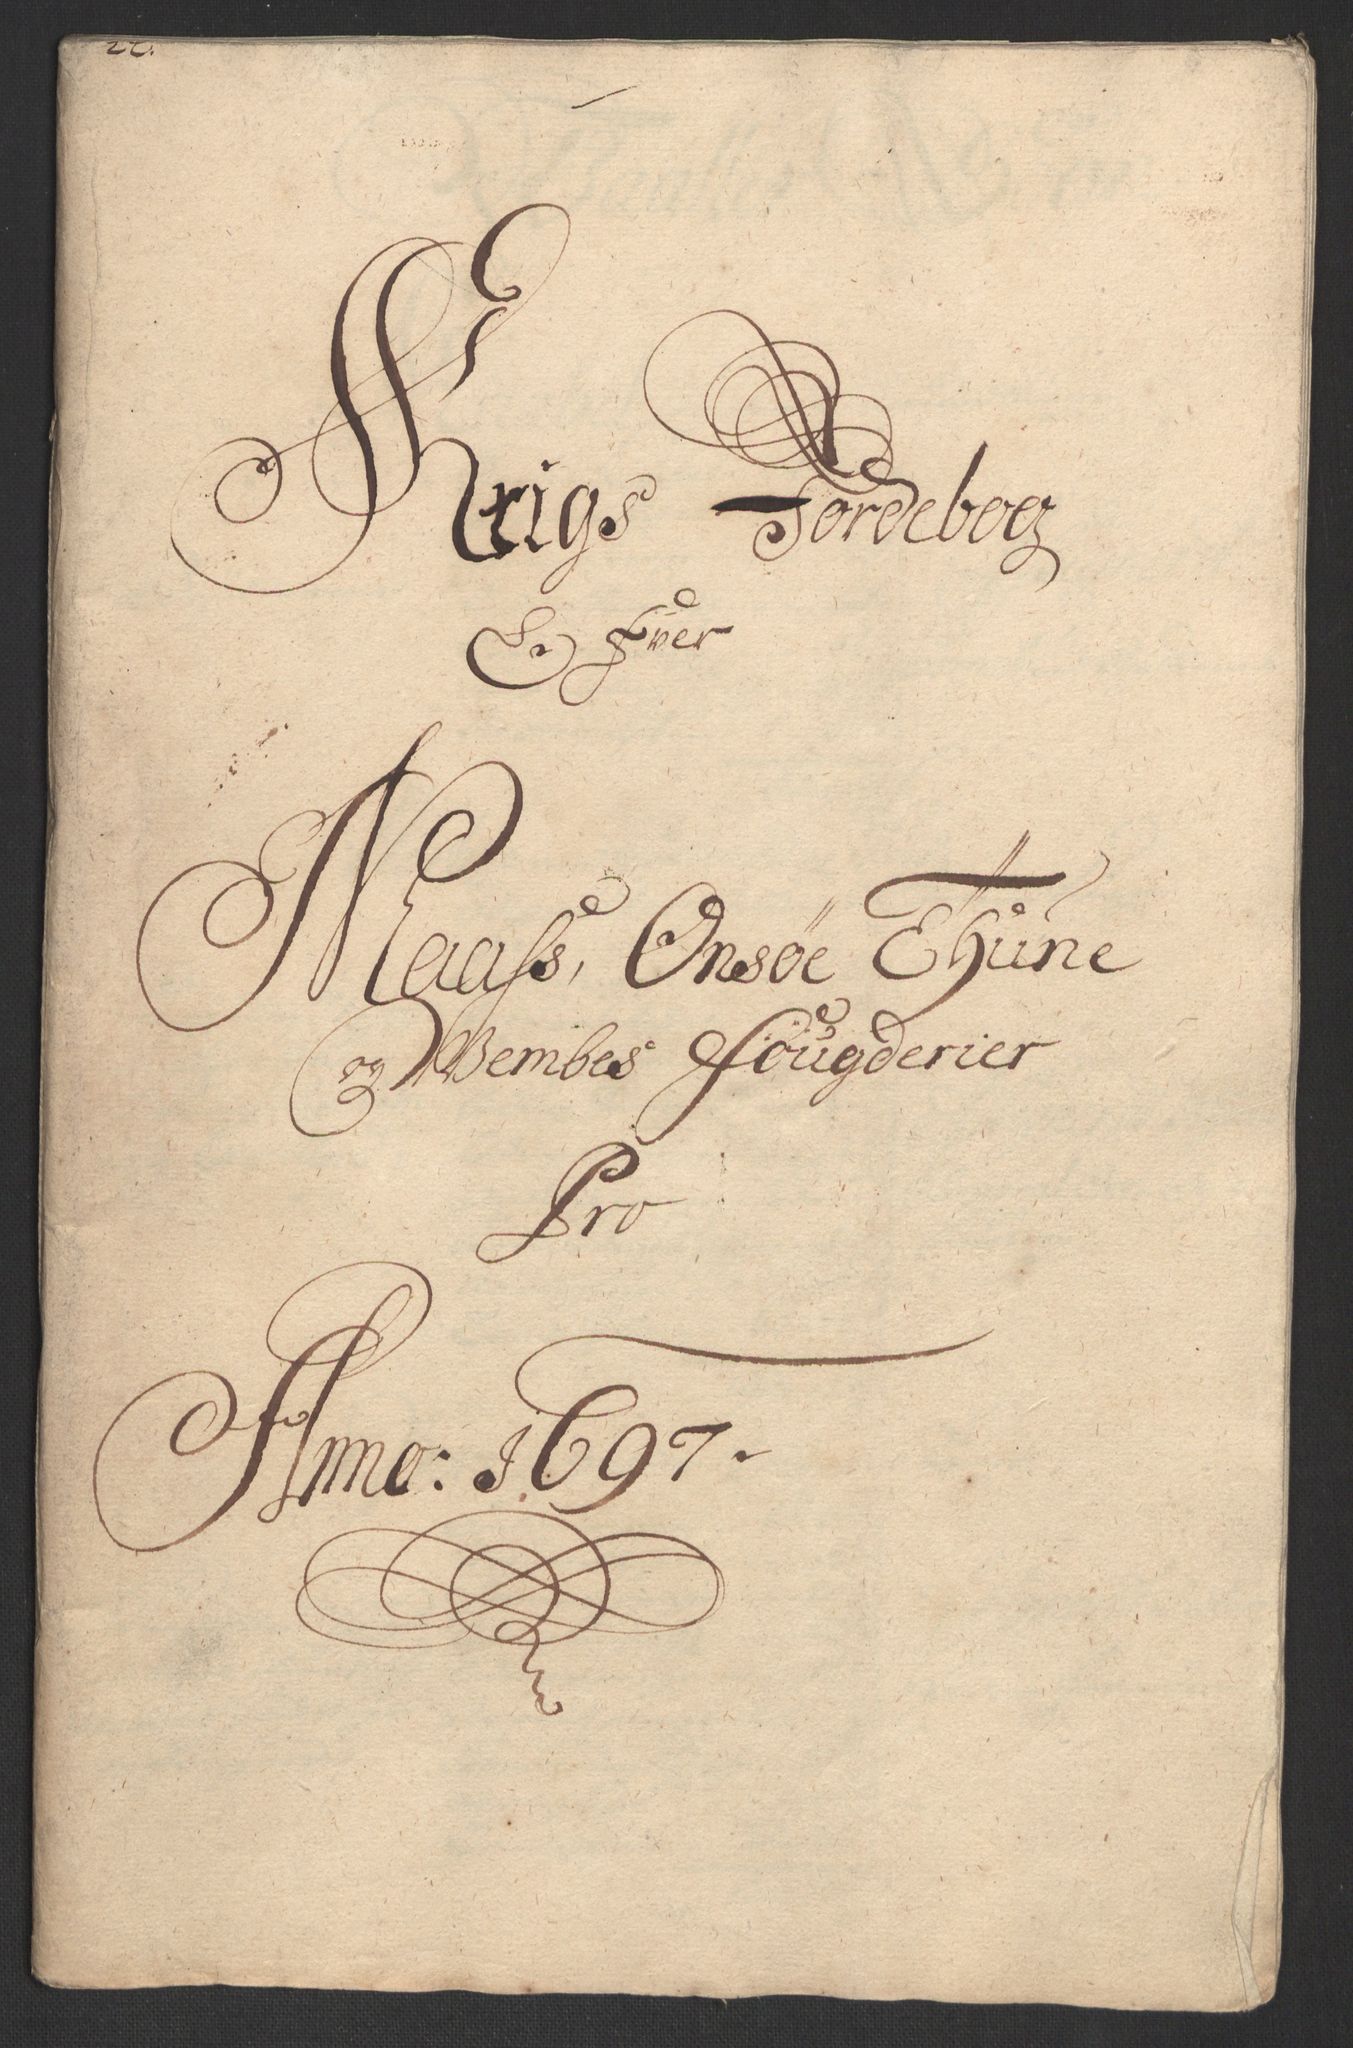 Krigs Jordeboeg
Ofver
Maass, Onsøe Thune
og Vembes fougderier
Pro
Anno: 1697.